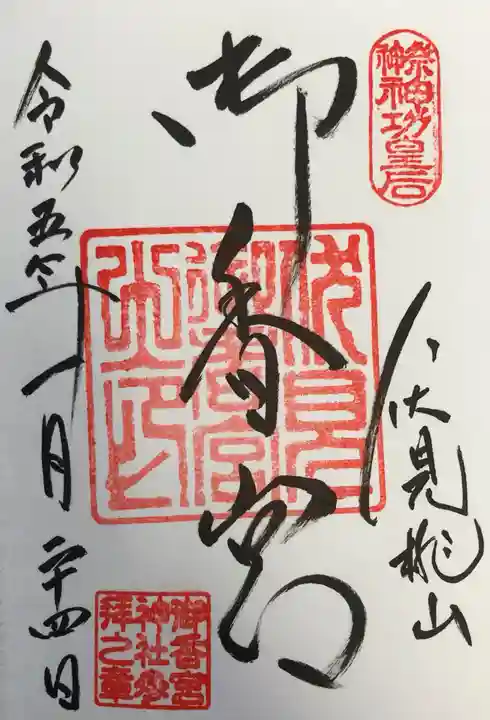 祭神
神功皇后
伏見桃山
御香宮
伏見
御香宮
之印
令和五年一月二十四日
御香宮
神社参
拝之章